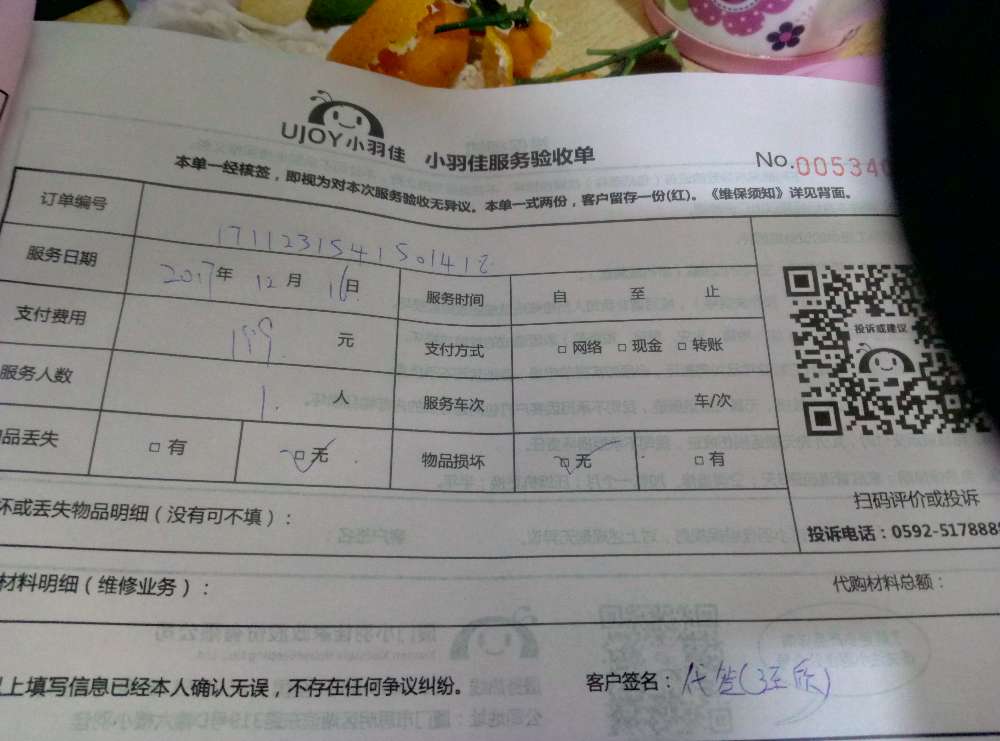 UJOY小羽佳 小羽佳服务验收单 No.00534
本单一经核签，即视为对本次服务验收无异议。本单一式两份，客户留存一份(红)。《维保须知》详见背面。
订单编号 171123154150141
服务日期 2017年 12月 16日 服务时间 自 至 止
支付费用 199 元 支付方式 □网络 □现金 □转账
服务人数 1. 人 服务车次 车/次
品丢失 □有 □无 物品损坏 □无 □有
投诉或建议
扫码评价或投诉
投诉电话：0592-5178888
坏或丢失物品明细（没有可不填）：
材料明细（维修业务）： 代购材料总额：
上填写信息已经本人确认无误，不存在任何争议纠纷。 客户签名：代签